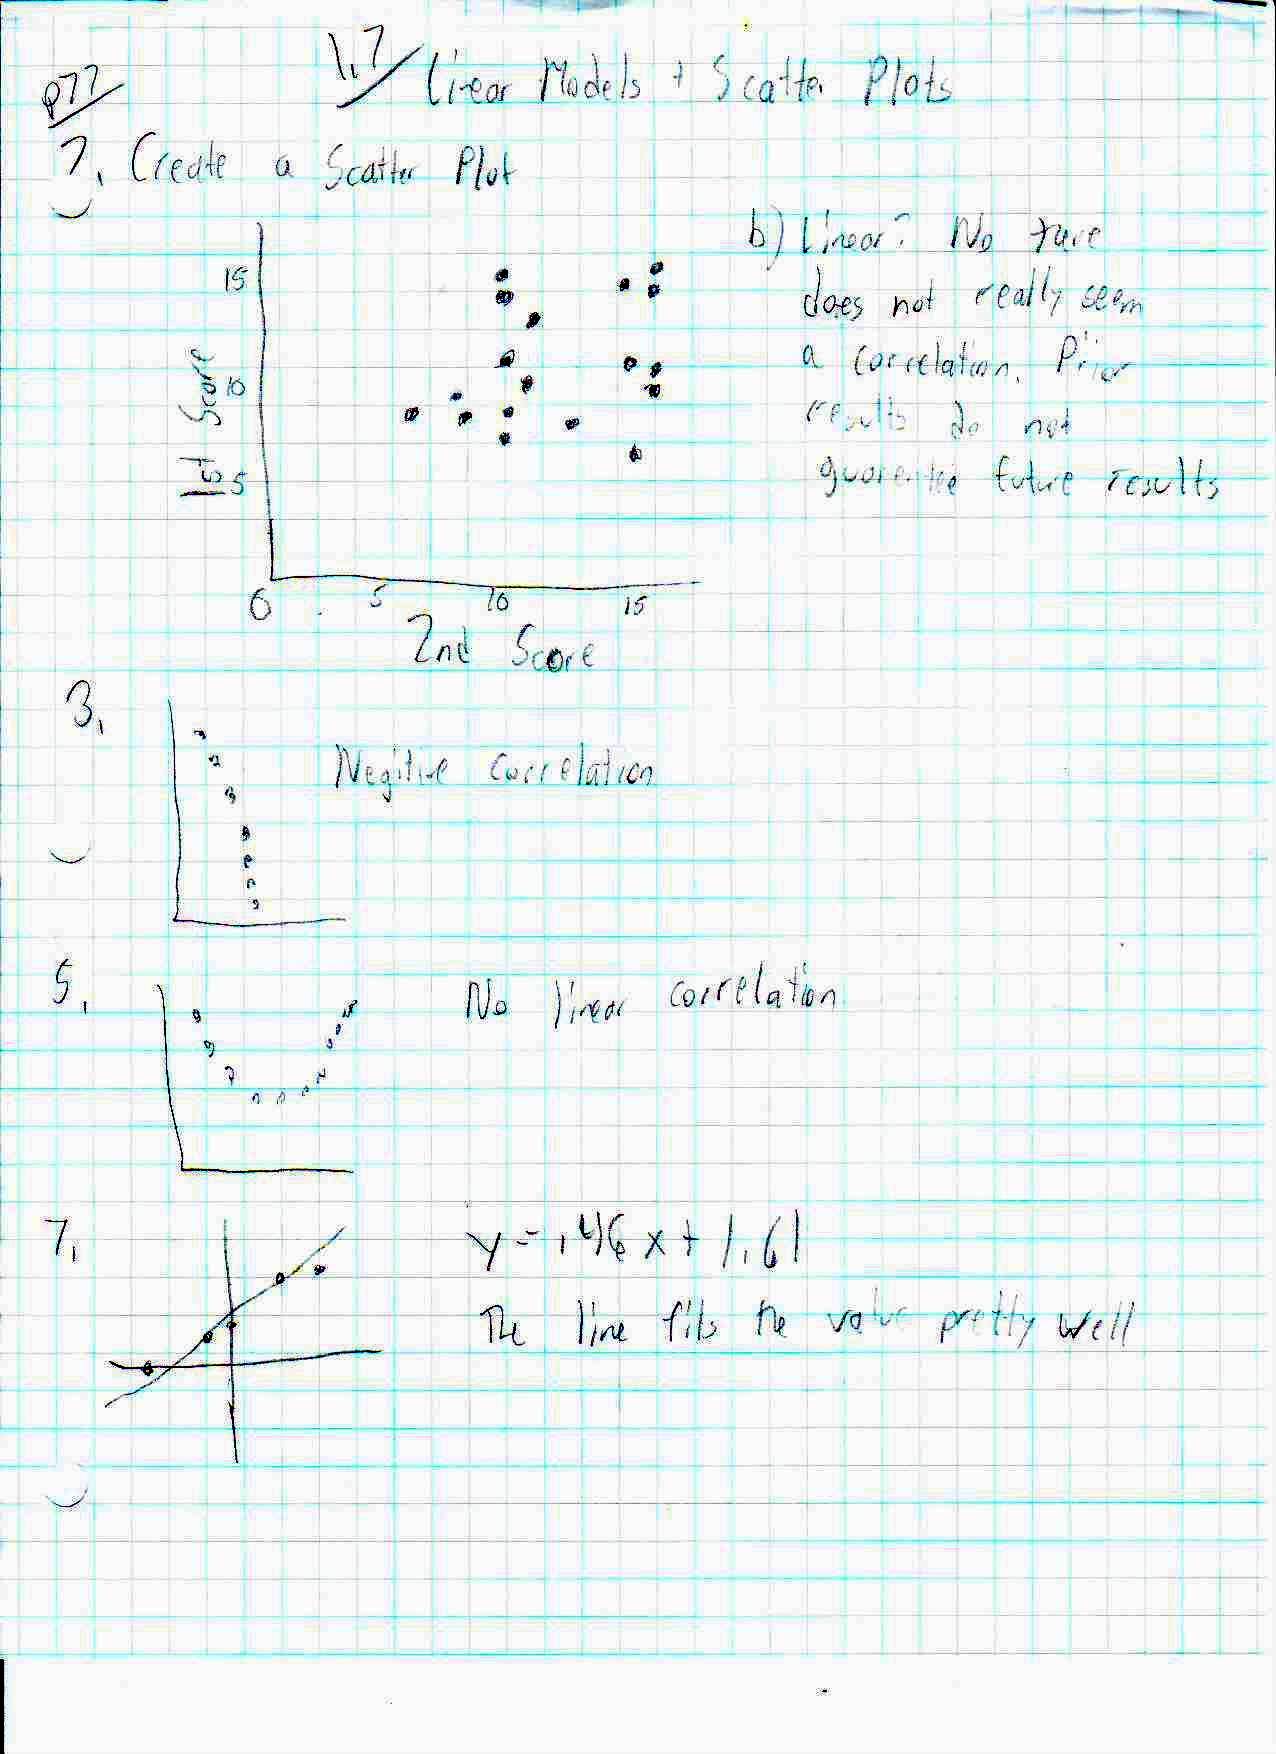 p77
1.7 Linear Models + Scatter Plots
1. Create a Scatter Plot
b) Linear? No ture
does not really seem
a correlation. Prior
results do not
guarentee future results
15
10
5
1st Score
0 5 10 15
2nd Score
3.
Negitive correlation
5.
No linear correlation
7.
y = .46x + 1.61
The line fits the value pretty well